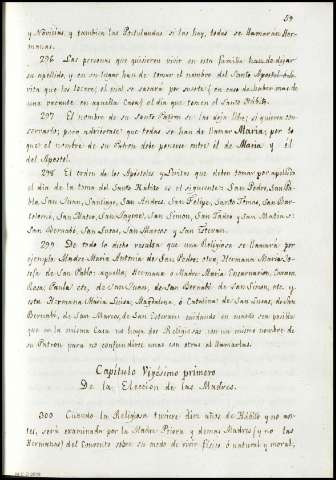 59
y Novicias, y tambien las Postulandas si las hay, todas se llamarán Her-
manas.
296 Las personas que quisieren vivir en esta familia han de dejar
su apellido, y en su lugar han de tomar el nombre del Santo Apostol ó Le-
vita que les tocare; el cual se sacará por suerte (en caso de haber mas de
una vacante en aquella Casa) el dia que tomen el Santo Hábito.
297 El nombre de su santo Patron se les deja libre; si quieren con-
servarle; pero adviertase que todas se han de llamar María; por lo
que el nombre de su Patron debe ponerse entre el de María y el
del Apostol.
298 El orden de los Apóstoles y Levitas que deben tomar por apellido
el dia de la toma del Santo Hábito es el siguiente: San Pedro, San Pa-
blo, San Juan, Santiago, San Andres, San Felipe, Santo Tomas, San Bar-
tolomé, San Mateo, San Jayme, San Simon, San Tadeo y San Matias:
San Bernabé, San Lucas, San Marcos y San Estevan.
299 De todo lo dicho resulta que una Religiosa se llamará por
ejemplo: Madre María Antonia de San Pedro; otra, Hermana María Jo-
sefa de San Pablo: aquella, Hermana ó Madre María Encarnacion, Carmen,
Rosa, Paula etc, de San Juan, de San Bernabé de San Simon, etc. y
esta Hermana María Luisa, Magdalena, ó Catalina de San Lucas, de San
Bernabé, de San Marcos, de San Estevan: cuidando en cuanto sea posible
que en la misma Casa no haya dos Religiosas con un mismo nombre de
su Patron para no confundirse unas con otras al llamarlas.
Capítulo Vigésimo primero
De la Eleccion de las Madres.
300 Cuando la Religiosa tuviere diez años de Hábito y no an-
tes, será examinada por la Madre Priora y demas Madres (y no las
Hermanas) del Convento sobre su modo de vivir físico ó natural y moral,